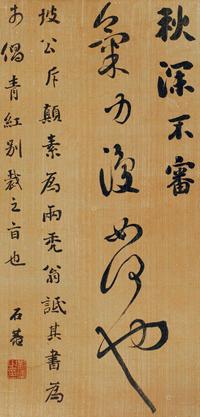 秋深不審
氣力復如何也
坡公斥顛素為兩禿翁詆其書為
市倡青紅別裁之旨也
石菴